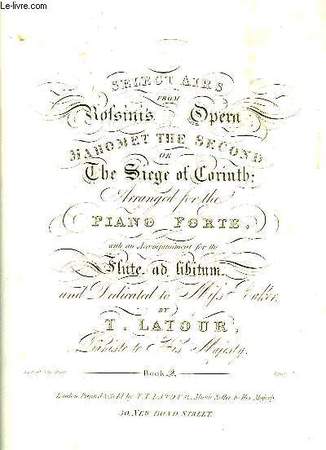 Le-livre.com
SELECT AIRS
FROM
Rofsini's Opera
MAHOMET THE SECOND
OR
The Siege of Corinth;
Arranged for the
PIANO FORTE,
with an Accompaniment for the
Flute, ad libitum,
and Dedicated to Mifs
BY
T. LATOUR,
Pianiste to His Majesty.
Book 2.
London, Printed & Sold by F. T. LATOUR, Music Seller to His Majesty
50, NEW BOND STREET.